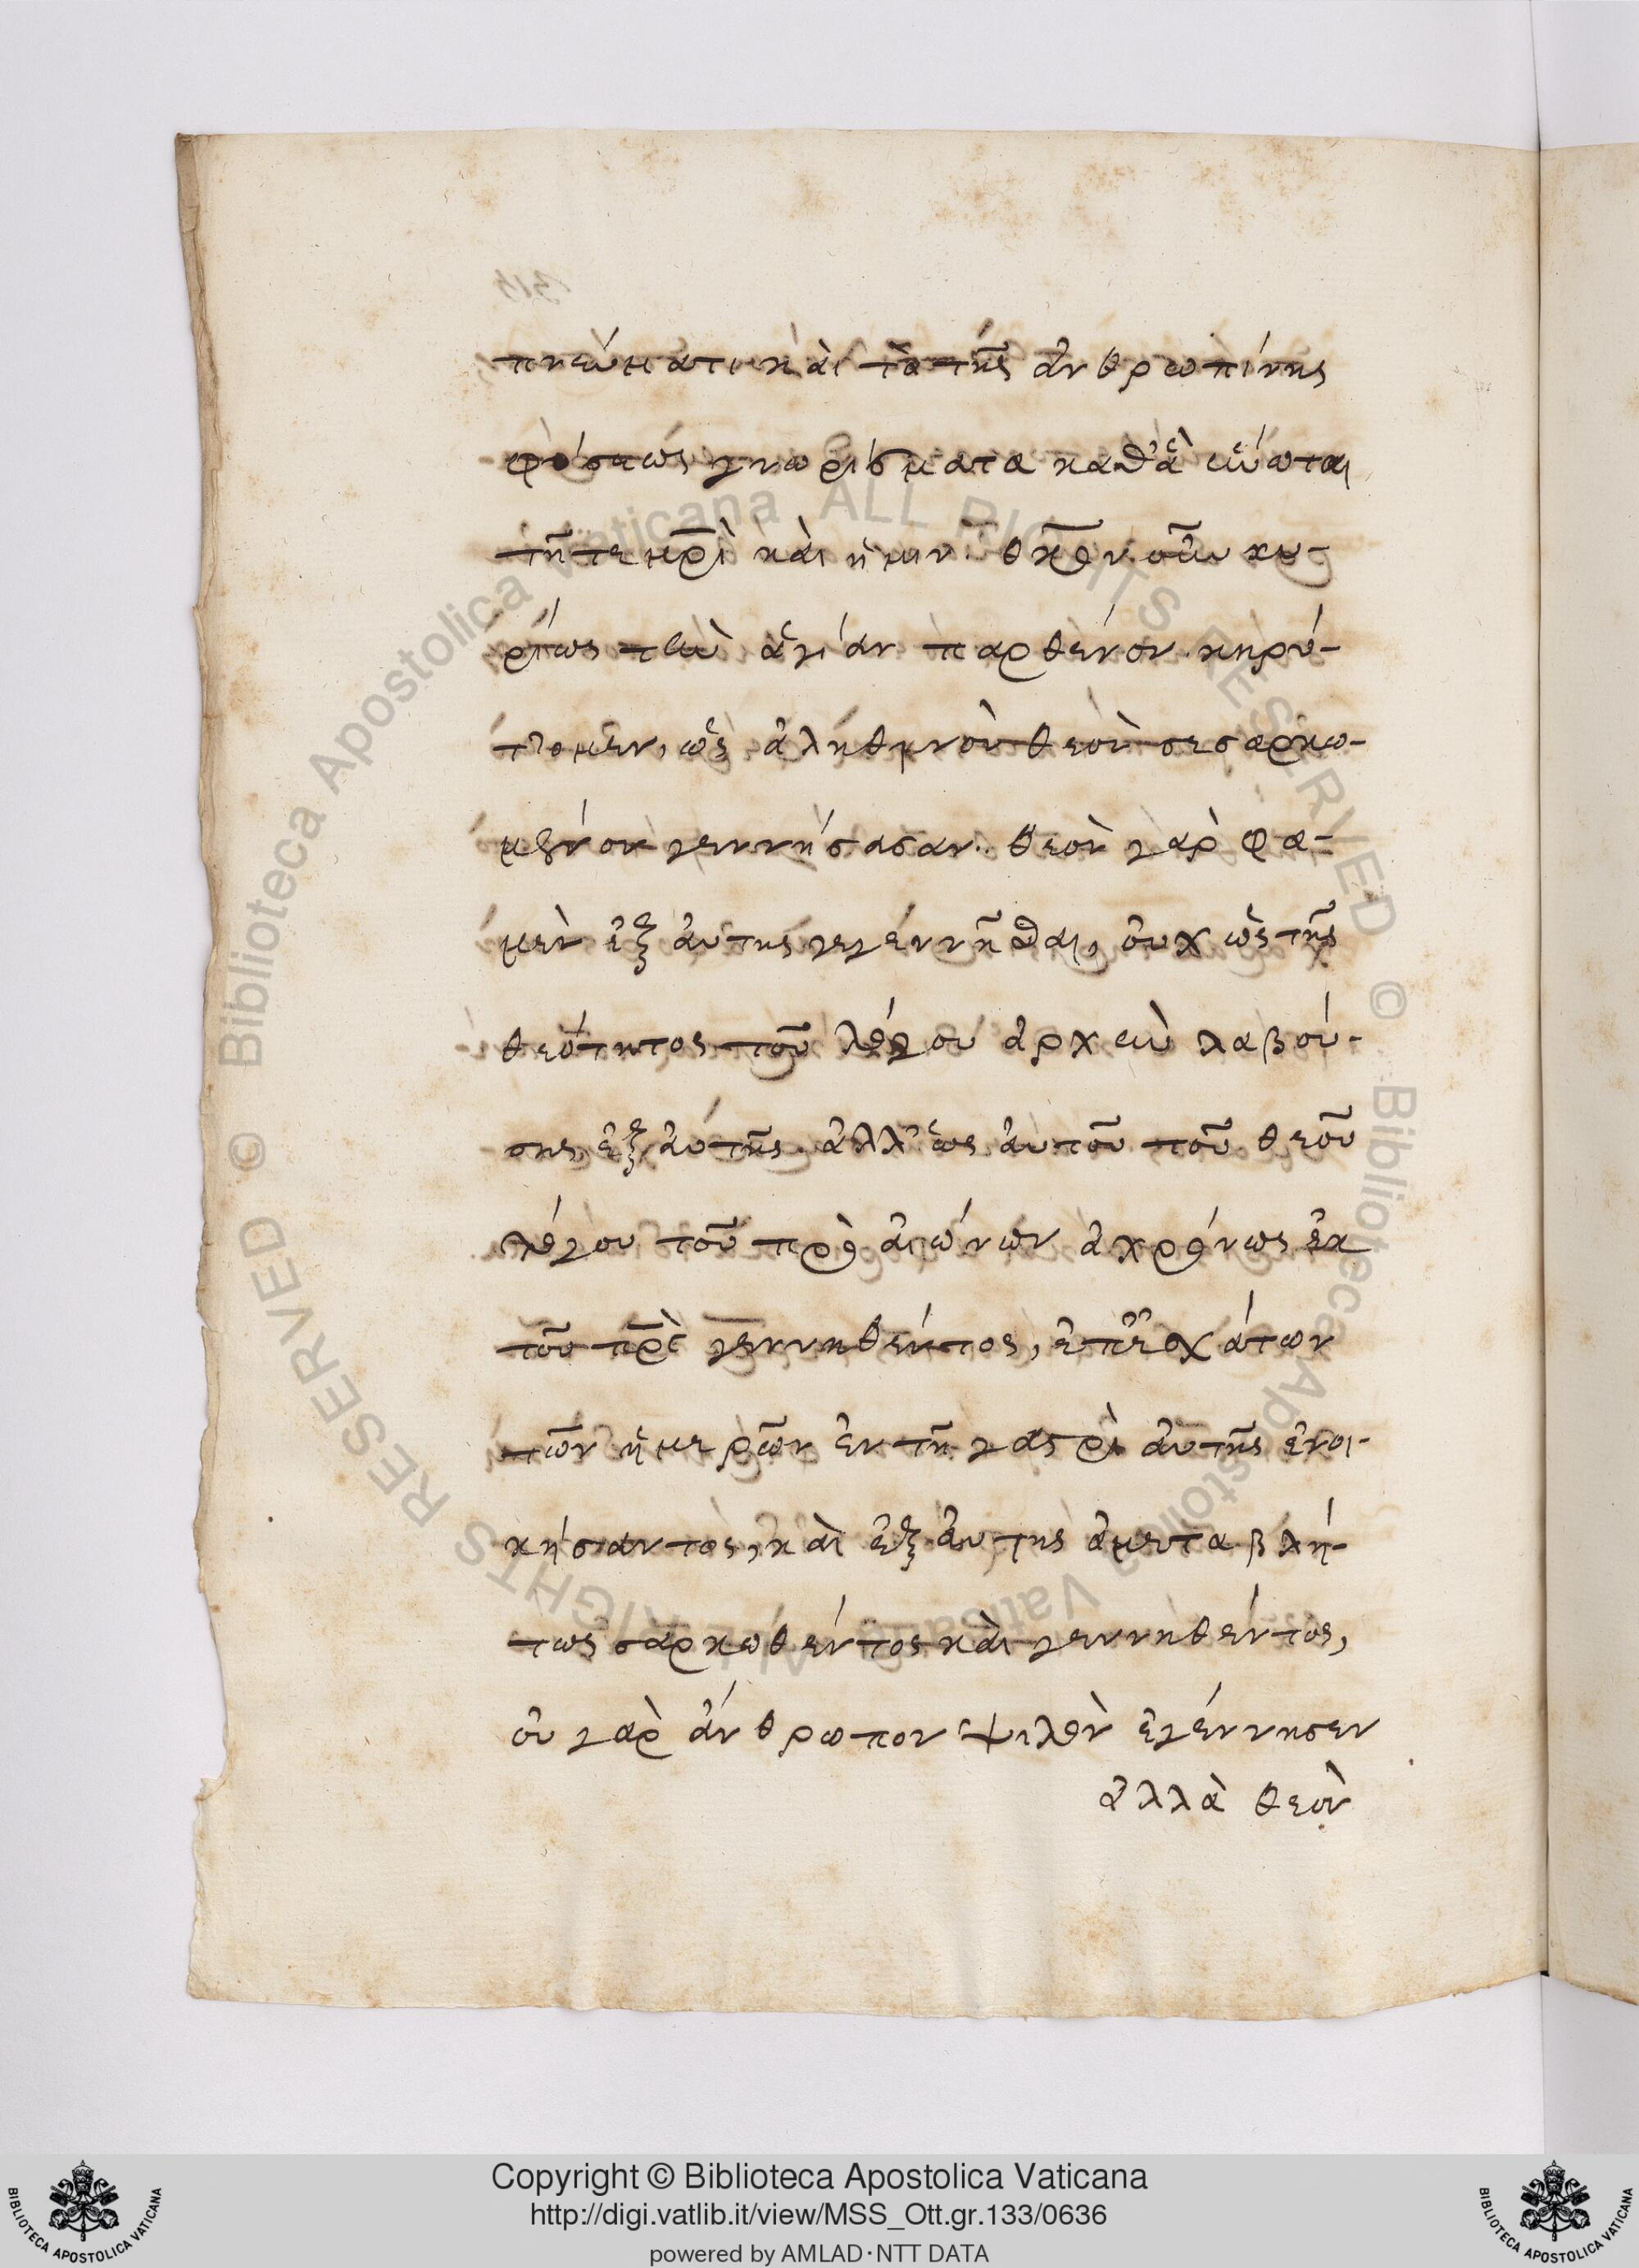 πνεύματι καὶ τὰ τῆς ἀνθρωπίνης
φύσεως γνωρίσματα καθ' ἃ ἥνωται
τῇ τε μρ̅ὶ καὶ ἡμῖν. θκ̅ον οὖν κυ-
ρίως τὴν ἁγίαν παρθένον κηρύ-
ττομεν, ὡς ἀληθινὸν θεὸν σεσαρκω-
μένον γεννήσασαν. θεὸν γὰρ φα-
μὲν ἐξ αὐτης γεγεννῆσθαι, οὐχ ὡς τῆς
θεότητος τοῦ λόγου ἀρχὴν λαβού-
σης ἐξ αὐτῆς. ἀλλ' ὡς αὐτοῦ τοῦ θεοῦ
λόγου τοῦ πρὸ αἰώνων ἀχρόνως ἐκ
τοῦ πρ̅ς γεννηθέντος, ἐπ' ἐσχάτων
τῶν ἡμερῶν ἐν τῇ γαστρὶ αὐτῆς ἐνοι-
κήσαντος, καὶ ἐξ αὐτης ἀμεταβλή-
τως σαρκωθέντος καὶ γεννηθέντος,
οὐ γὰρ ἄνθρωπον ψιλὸν ἐγέννησεν
ἀλλὰ θεὸν
Copyright © Biblioteca Apostolica Vaticana
http://digi.vatlib.it/view/MSS_Ott.gr.133/0636
powered by AMLAD·NTT DATA
BIBLIOTECA APOSTOLICA VATICANA
BIBLIOTECA APOSTOLICA VATICANA
© Biblioteca Apostolica Vaticana ALL RIGHTS RESERVED
© Biblioteca Apostolica Vaticana ALL RIGHTS RESERVED